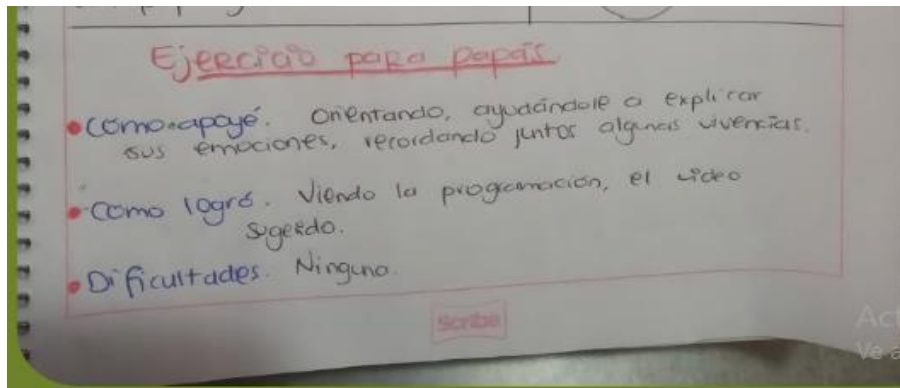 Ejercicio para papás
• Como apoyé. Orientando, ayudándole a explicar
sus emociones, recordando juntos algunas vivencias.
• Como logré. Viendo la programación, el video
sugerido.
• Dificultades. Ninguna.
Scribe
Ve a